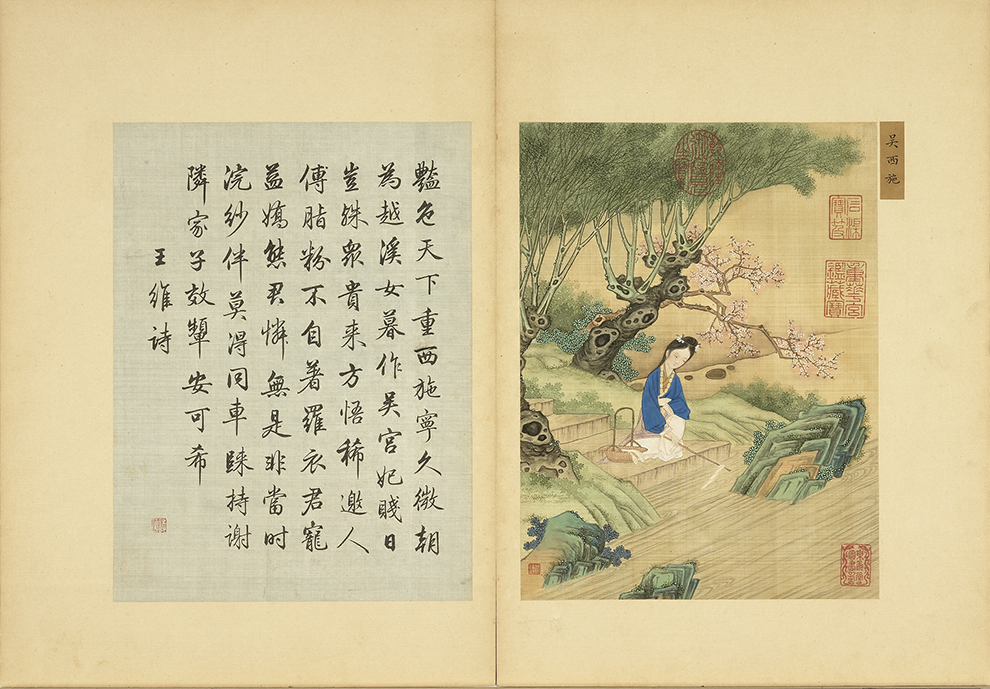 吳西施
豔色天下重西施寧久微朝
為越溪女暮作吳宮妃賤日
豈殊衆貴来方悟稀邀人
傅脂粉不自著羅衣君寵
益嬌態君憐無是非當时
浣紗伴莫得同車歸持謝
隣家子效顰安可希
王維詩
重華宮鑑藏寶